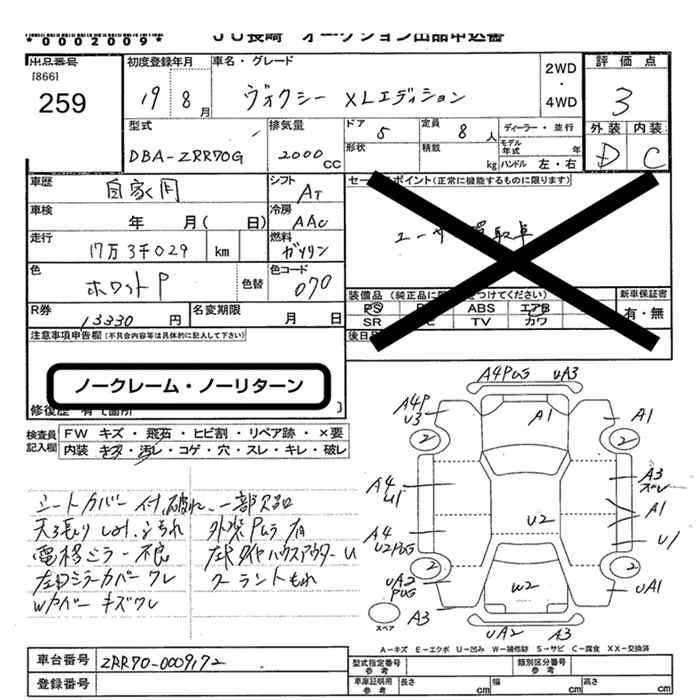 *0002009*
JU長崎 オークション出品申込書
出品番号
[866]
259
初度登録年月
19 8月
車名・グレード
ヴォクシー XLエディション
2WD
・
4WD
評価点
3
外装 内装
D C
型式
DBA-ZRR70G
排気量
2000 CC
ドア
5
形状
定員
8人
積載
kg
ディーラー・並行
モデル年式 年
ハンドル 左・右
車歴
自家用
シフト
AT
車検
年 月( 日)
冷房
AAC
走行
17万3千029 km
燃料
ガソリン
色
ホワイトP
色替
色コード
070
R券
13330 円
名変期限
月 日
セールスポイント(正常に機能するものに限ります)
ユーザー買取車
装備品
PS
ABS エアB
SR TV カワ
新車保証書
有・無
注意事項申告欄(不具合内容等は具体的に記入して下さい)
ノークレーム・ノーリターン
検査員記入欄
FW キズ・飛石・ヒビ割・リペア跡・×要
内装 キズ・汚レ・コゲ・穴・スレ・キレ・破レ
シートカバー付、破れ、一部欠品
天張り しみ、よごれ 外装Pムラ有
電格ミラー不良
左右ミラーカバーワレ クーラントもれ
WPバー キズワレ
A4PUG UA3
A4P U3
A1
A1
2
2
A4 U1
A3 ズレ
A1
A4 U2PUG
U2
U1
2
2
UA2 PUG
W2
UA1
スペア
A3
UA2 A3
A-キズ E-エクボ U-凹み W-補修跡 S-サビ C-腐食 XX-交換済
車台番号
ZRR70-0009172
登録番号
型式指定番号 参考
類別区分番号 参考
車庫証明用 参考
長さ cm
幅 cm
高さ cm